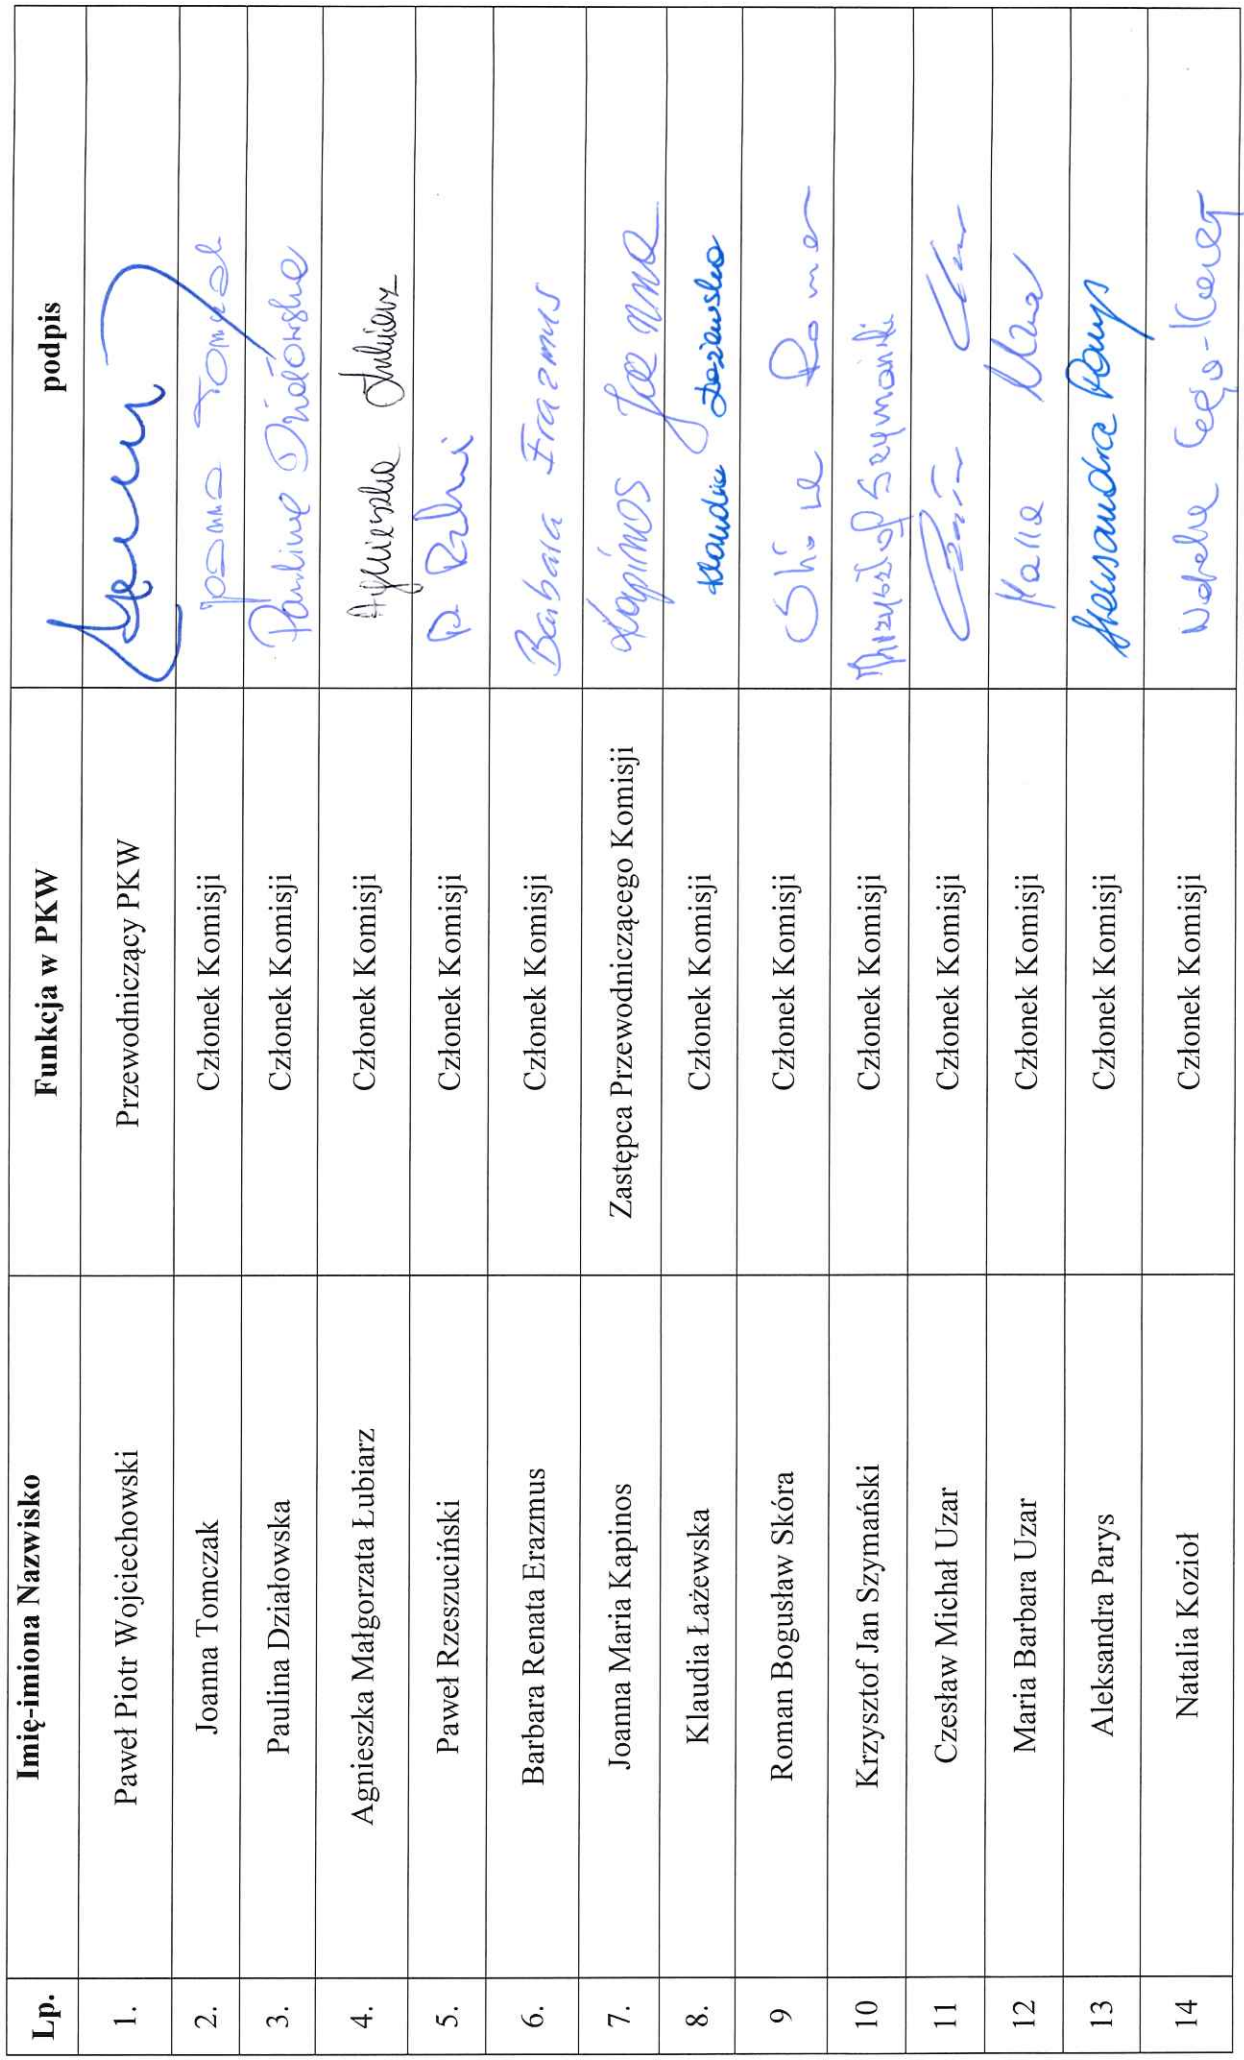 Lp. Imię-imiona Nazwisko Funkcja w PKW podpis
1. Paweł Piotr Wojciechowski Przewodniczący PKW
2. Joanna Tomczak Członek Komisji Joanna Tomczak
3. Paulina Działowska Członek Komisji Paulina Działowska
4. Agnieszka Małgorzata Łubiarz Członek Komisji Agnieszka Łubiarz
5. Paweł Rzeszuciński Członek Komisji
6. Barbara Renata Erazmus Członek Komisji Barbara Erazmus
7. Joanna Maria Kapinos Zastępca Przewodniczącego Komisji Kapinos Joanna
8. Klaudia Łażewska Członek Komisji Klaudia Łażewska
9 Roman Bogusław Skóra Członek Komisji Skóra Roman
10 Krzysztof Jan Szymański Członek Komisji Krzysztof Szymański
11 Czesław Michał Uzar Członek Komisji
12 Maria Barbara Uzar Członek Komisji Maria Uzar
13 Aleksandra Parys Członek Komisji Aleksandra Parys
14 Natalia Kozioł Członek Komisji